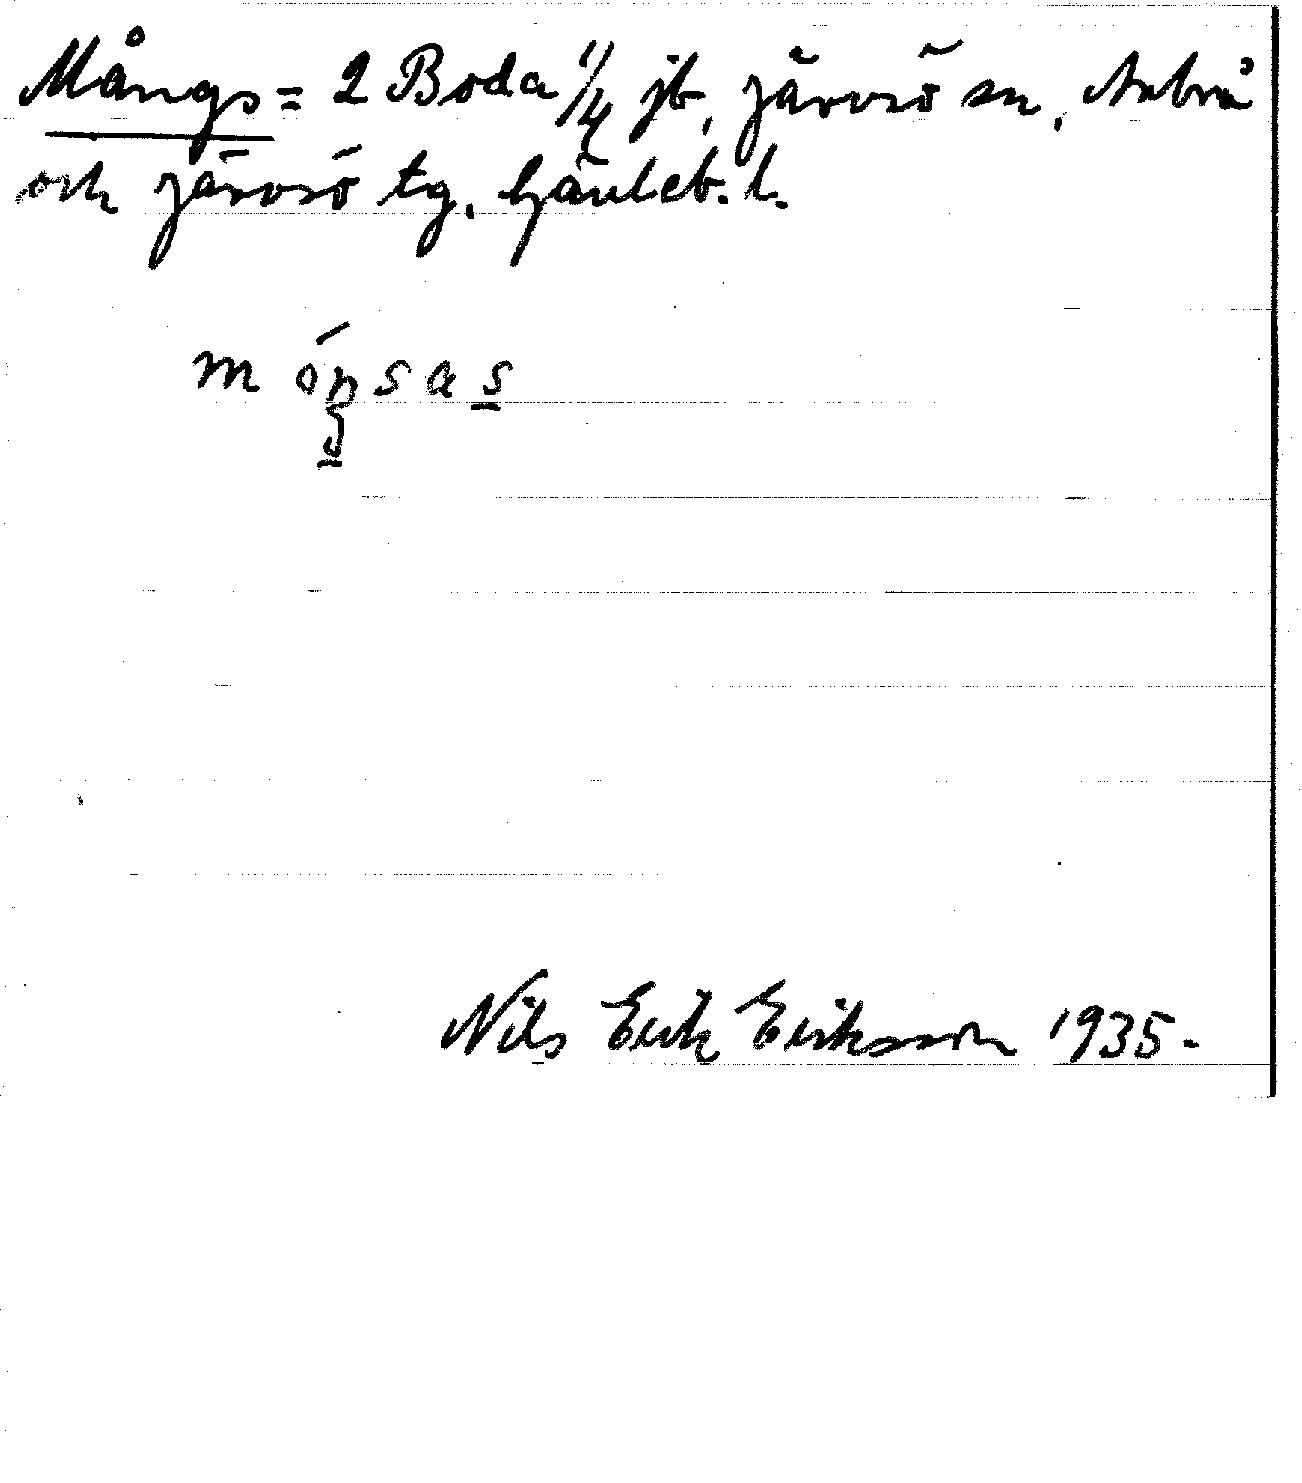 Mångs = 2 Boda 1/4 jb, Järvsö sn, Arbrå
och Järvsö tg. Gävleb. l.
móŋsas
Nils Erik Eriksson 1935.